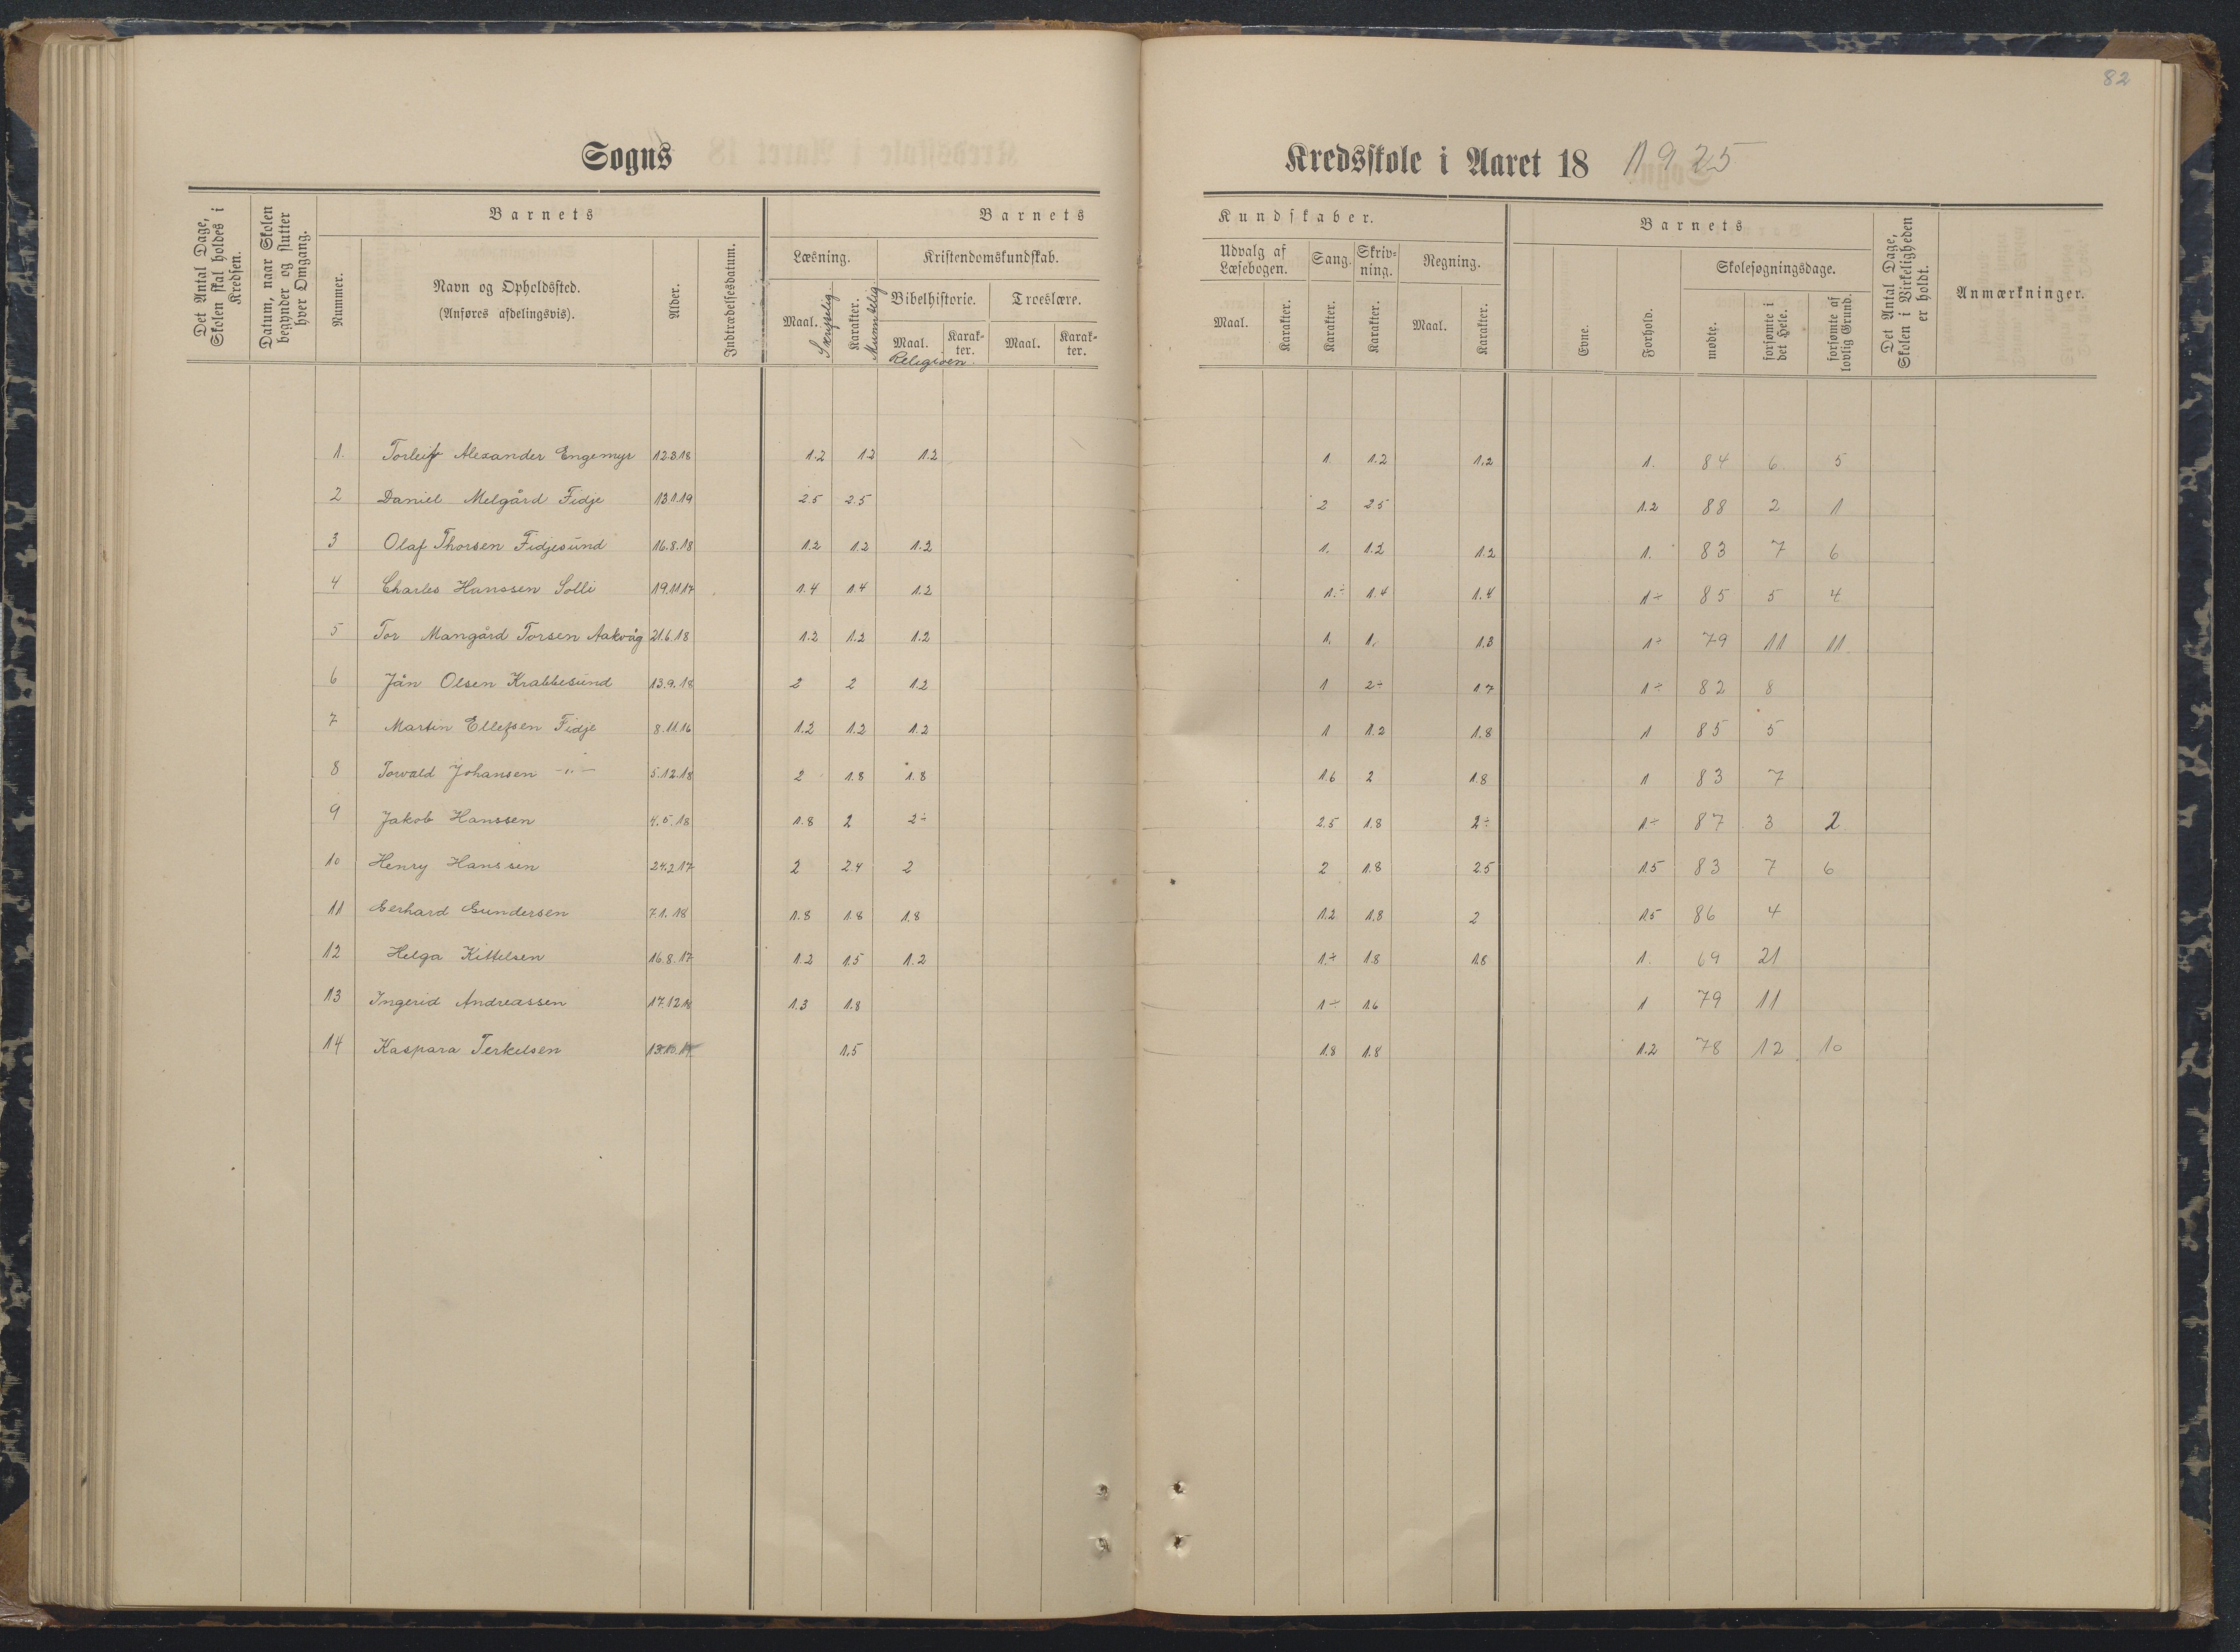 82
Sogns Kredsskole i Aaret 18 1925
Det Antal Dage, Skolen skal holdes i Kredsen.
Datum, naar Skolen begynder og slutter hver Omgang.
Barnets
Nummer.
Navn og Opholdssted.
(Anføres afdelingsvis).
Alder.
Indtrædelsesdatum.
Barnets Kundskaber.
Læsning.
Maal. Skriftelig
Karakter. Munntelig
Kristendomskundskab.
Bibelhistorie. Troeslære.
Maal. Karakter. Maal. Karakter.
Religioen.
Udvalg af Læsebogen.
Maal. Karakter.
Sang.
Karakter.
Skrivning.
Karakter.
Regning.
Maal. Karakter.
Barnets
Evne.
Forhold.
Skolesøgningsdage.
mødte.
forsømte i det Hele.
forsømte af lovlig Grund.
Det Antal Dage, Skolen i Virkeligheden er holdt.
Anmærkninger.
1. Torleif Alexander Engemyr 12.3.18 1.2 1.2 1.2 1. 1.2 1.2 1. 84 6 5
2 Daniel Melgård Fidje 13.1.19 2.5 2.5 2 2.5 1.2 88 2 1
3 Olaf Thorsen Fidjesund 16.8.18 1.2 1.2 1.2 1. 1.2 1.2 1. 83 7 6
4 Charles Hanssen Solli 19.11.17 1.4 1.4 1.2 1.÷ 1.4 1.4 1÷ 85 5 4
5 Tor Mangård Torsen Aakvåg 21.6.18 1.2 1.2 1.2 1. 1. 1.3 1÷ 79 11 11
6 Jån Olsen Krabbesund 13.9.18 2 2 1.2 1 2÷ 1.7 1÷ 82 8
7 Martin Ellefsen Fidje 8.11.16 1.2 1.2 1.2 1 1.2 1.8 1 85 5
8 Torvald Johansen -"- 5.12.18 2 1.8 1.8 1.6 2 1.8 1 83 7
9 Jakob Hanssen 4.5.18 1.8 2 2÷ 2.5 1.8 2÷ 1÷ 87 3 2
10 Henry Hanssen 24.2.17 2 2.4 2 2 1.8 2.5 1.5 83 7 6
11 Gerhard Gundersen 7.1.18 1.8 1.8 1.8 1.2 1.8 2 1.5 86 4
12 Helga Kittelsen 16.8.17 1.2 1.5 1.2 1.÷ 1.8 1.8 1. 69 21
13 Ingerid Andreassen 17.12.18 1.3 1.8 1÷ 1.6 1 79 11
14 Kaspara Terkelsen 1.5 1.8 1.8 1.2 78 12 10